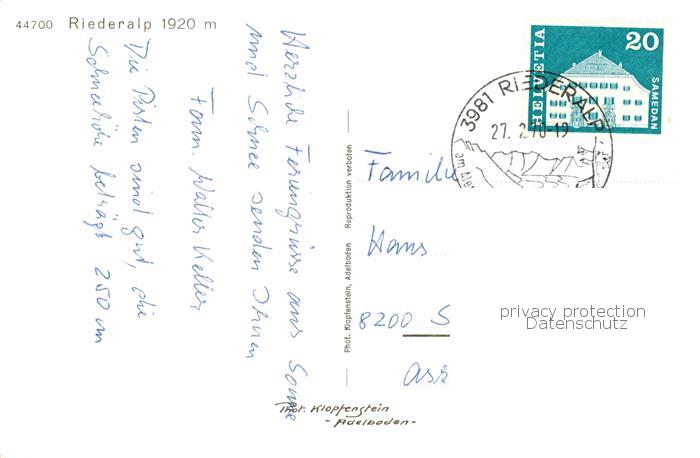 44700 Riederalp 1920 m
Herzliche Feriengrüsse aus Sonne
und Schnee senden Ihnen
Fam. Walter Keller
Die Pisten sind gut, die
Schneehöhe beträgt 250 cm
Phot. Klopfenstein, Adelboden Reproduktion verboten
HELVETIA
20
SAMEDAN
3981 RIEDERALP
27. 2.70-19
am Ale
Familie
Hans
8200 S
privacy protection
Datenschutz
Phot. Klopfenstein
- Adelboden -